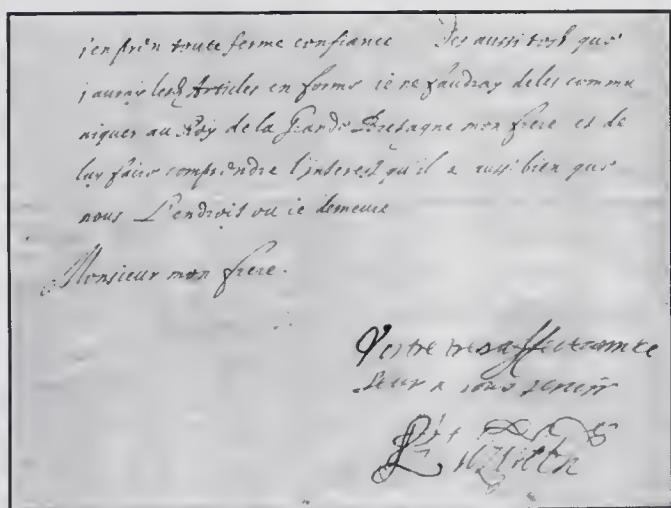 j'en pren toute ferme confiance Des aussi tost que
j'auray lesd Articles en forme ie ne faudray deles commu
niquer au Roy de la Grande Bretagne mon frere et de
luy faire comprendre l'interest qu'il a aussi bien que
nous L'endroit ou ie demeure
Monsieur mon frere.
Vostre tresaffectionnee
seur a vous servir